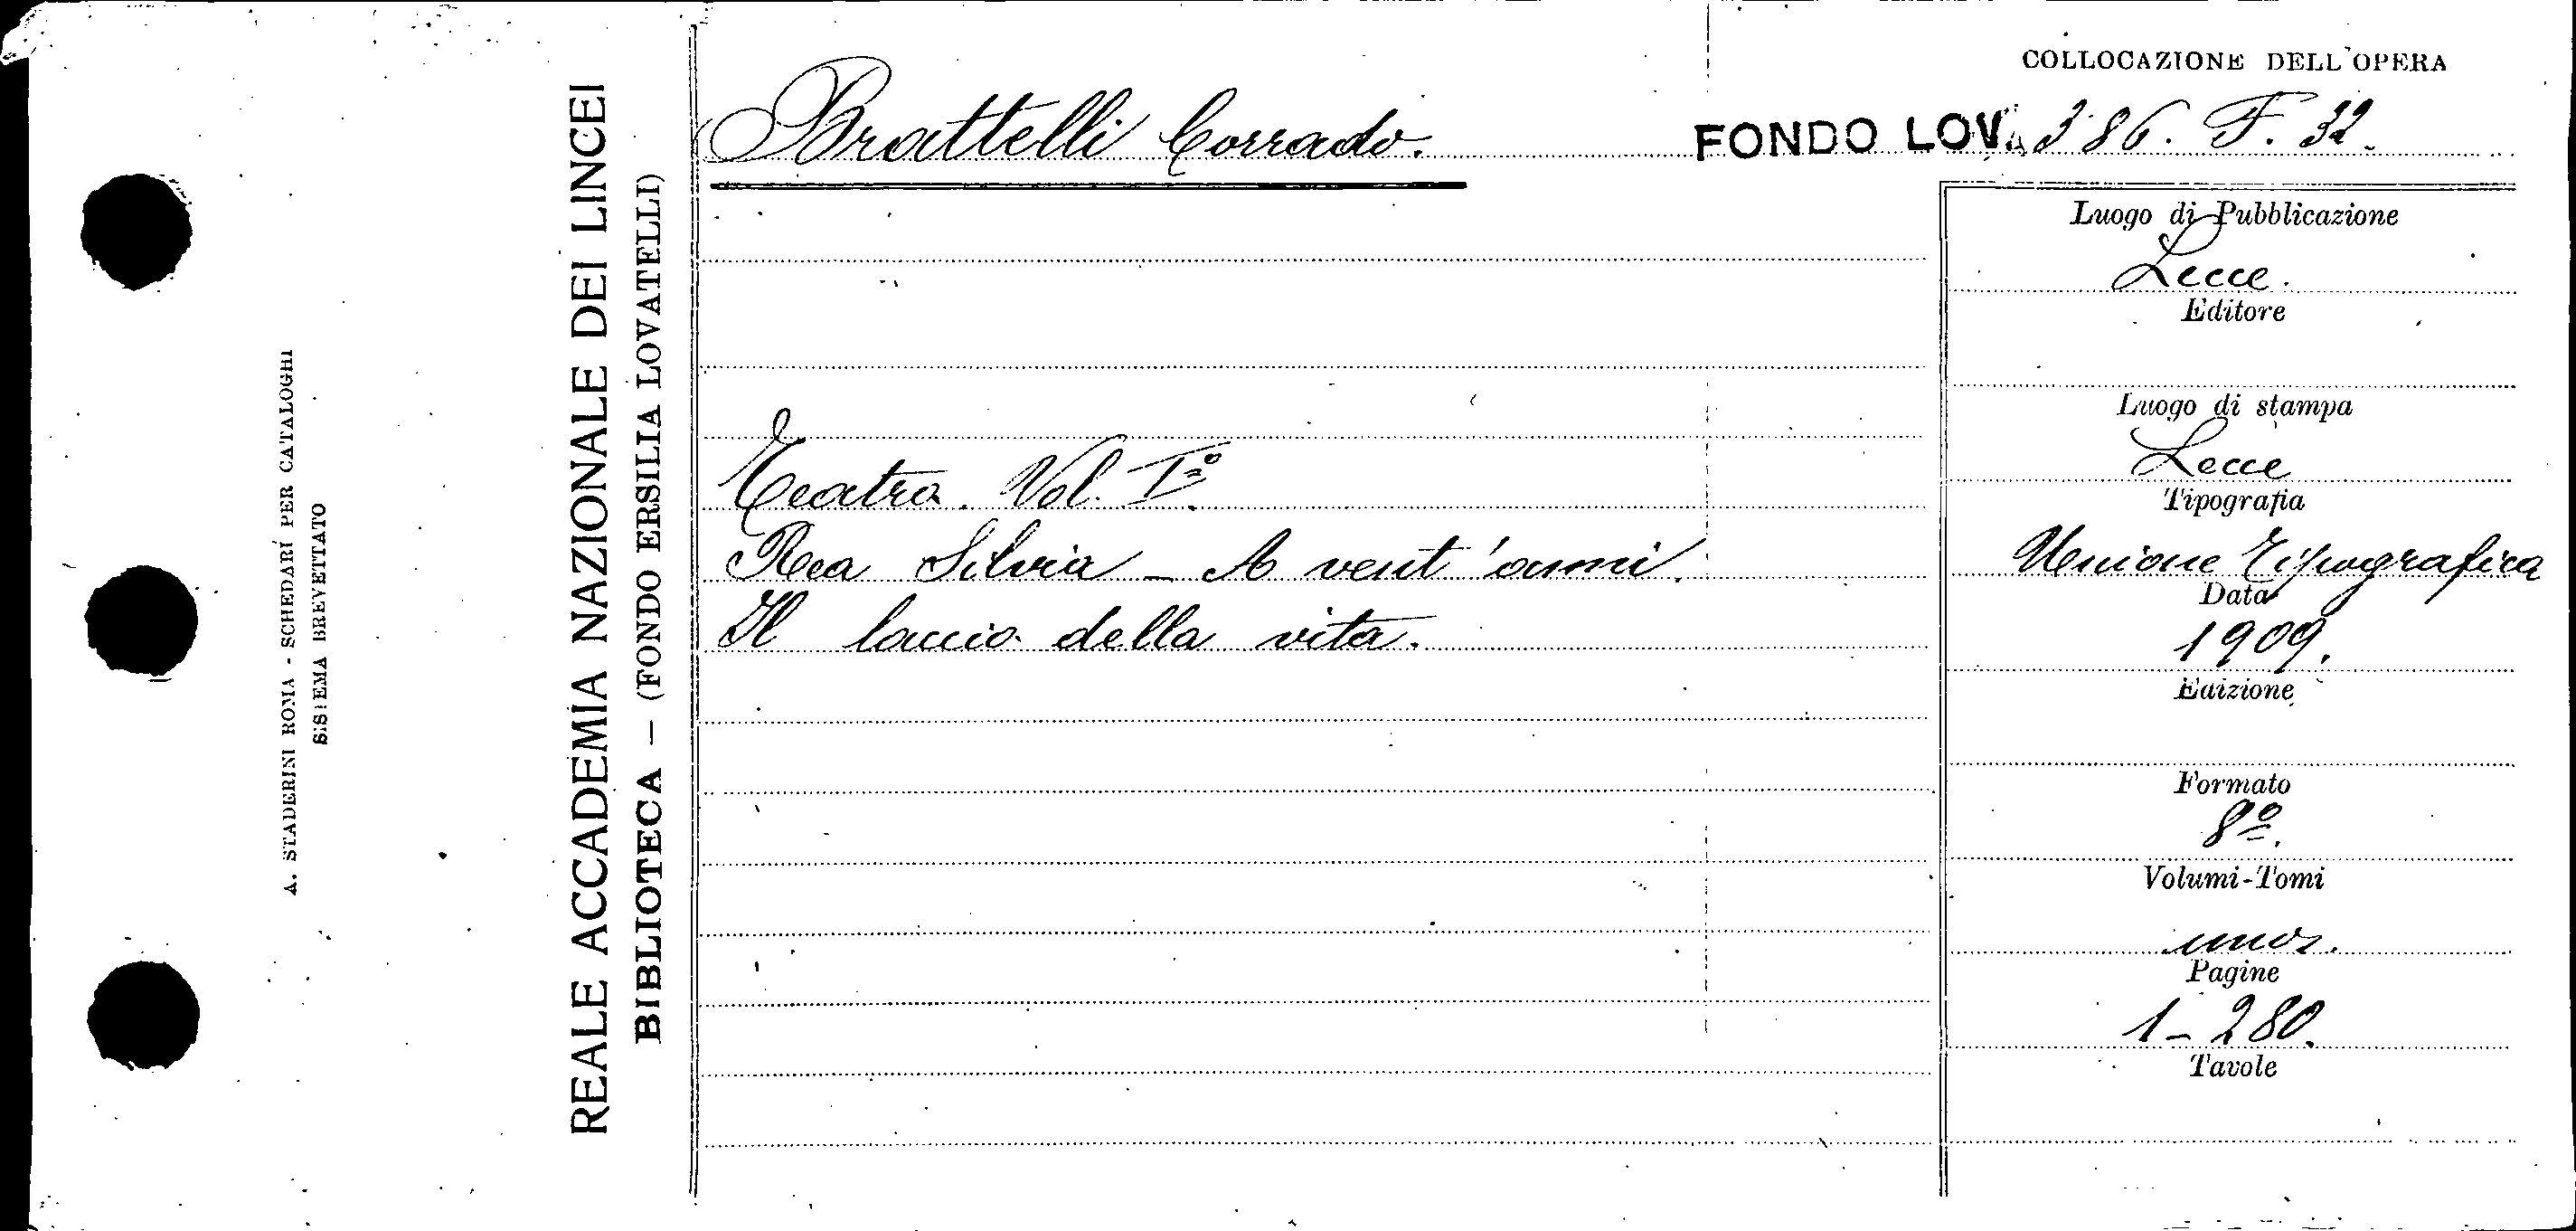 COLLOCAZIONE DELL'OPERA
Brattelli Corrado.
FONDO LOV. 386. F. 32.
Teatro. Vol. Iº
Rea Silvia - A vent'anni.
Il laccio della vita.
Luogo di Pubblicazione
Lecce.
Editore
Luogo di stampa
Lecce
Tipografia
Unione Tipografica
Data
1909.
Edizione
Formato
8º.
Volumi-Tomi
uno.
Pagine
1-280.
Tavole
REALE ACCADEMIA NAZIONALE DEI LINCEI
BIBLIOTECA — (FONDO ERSILIA LOVATELLI)
A. STADERINI ROMA - SCHEDARI PER CATALOGHI
SISTEMA BREVETTATO